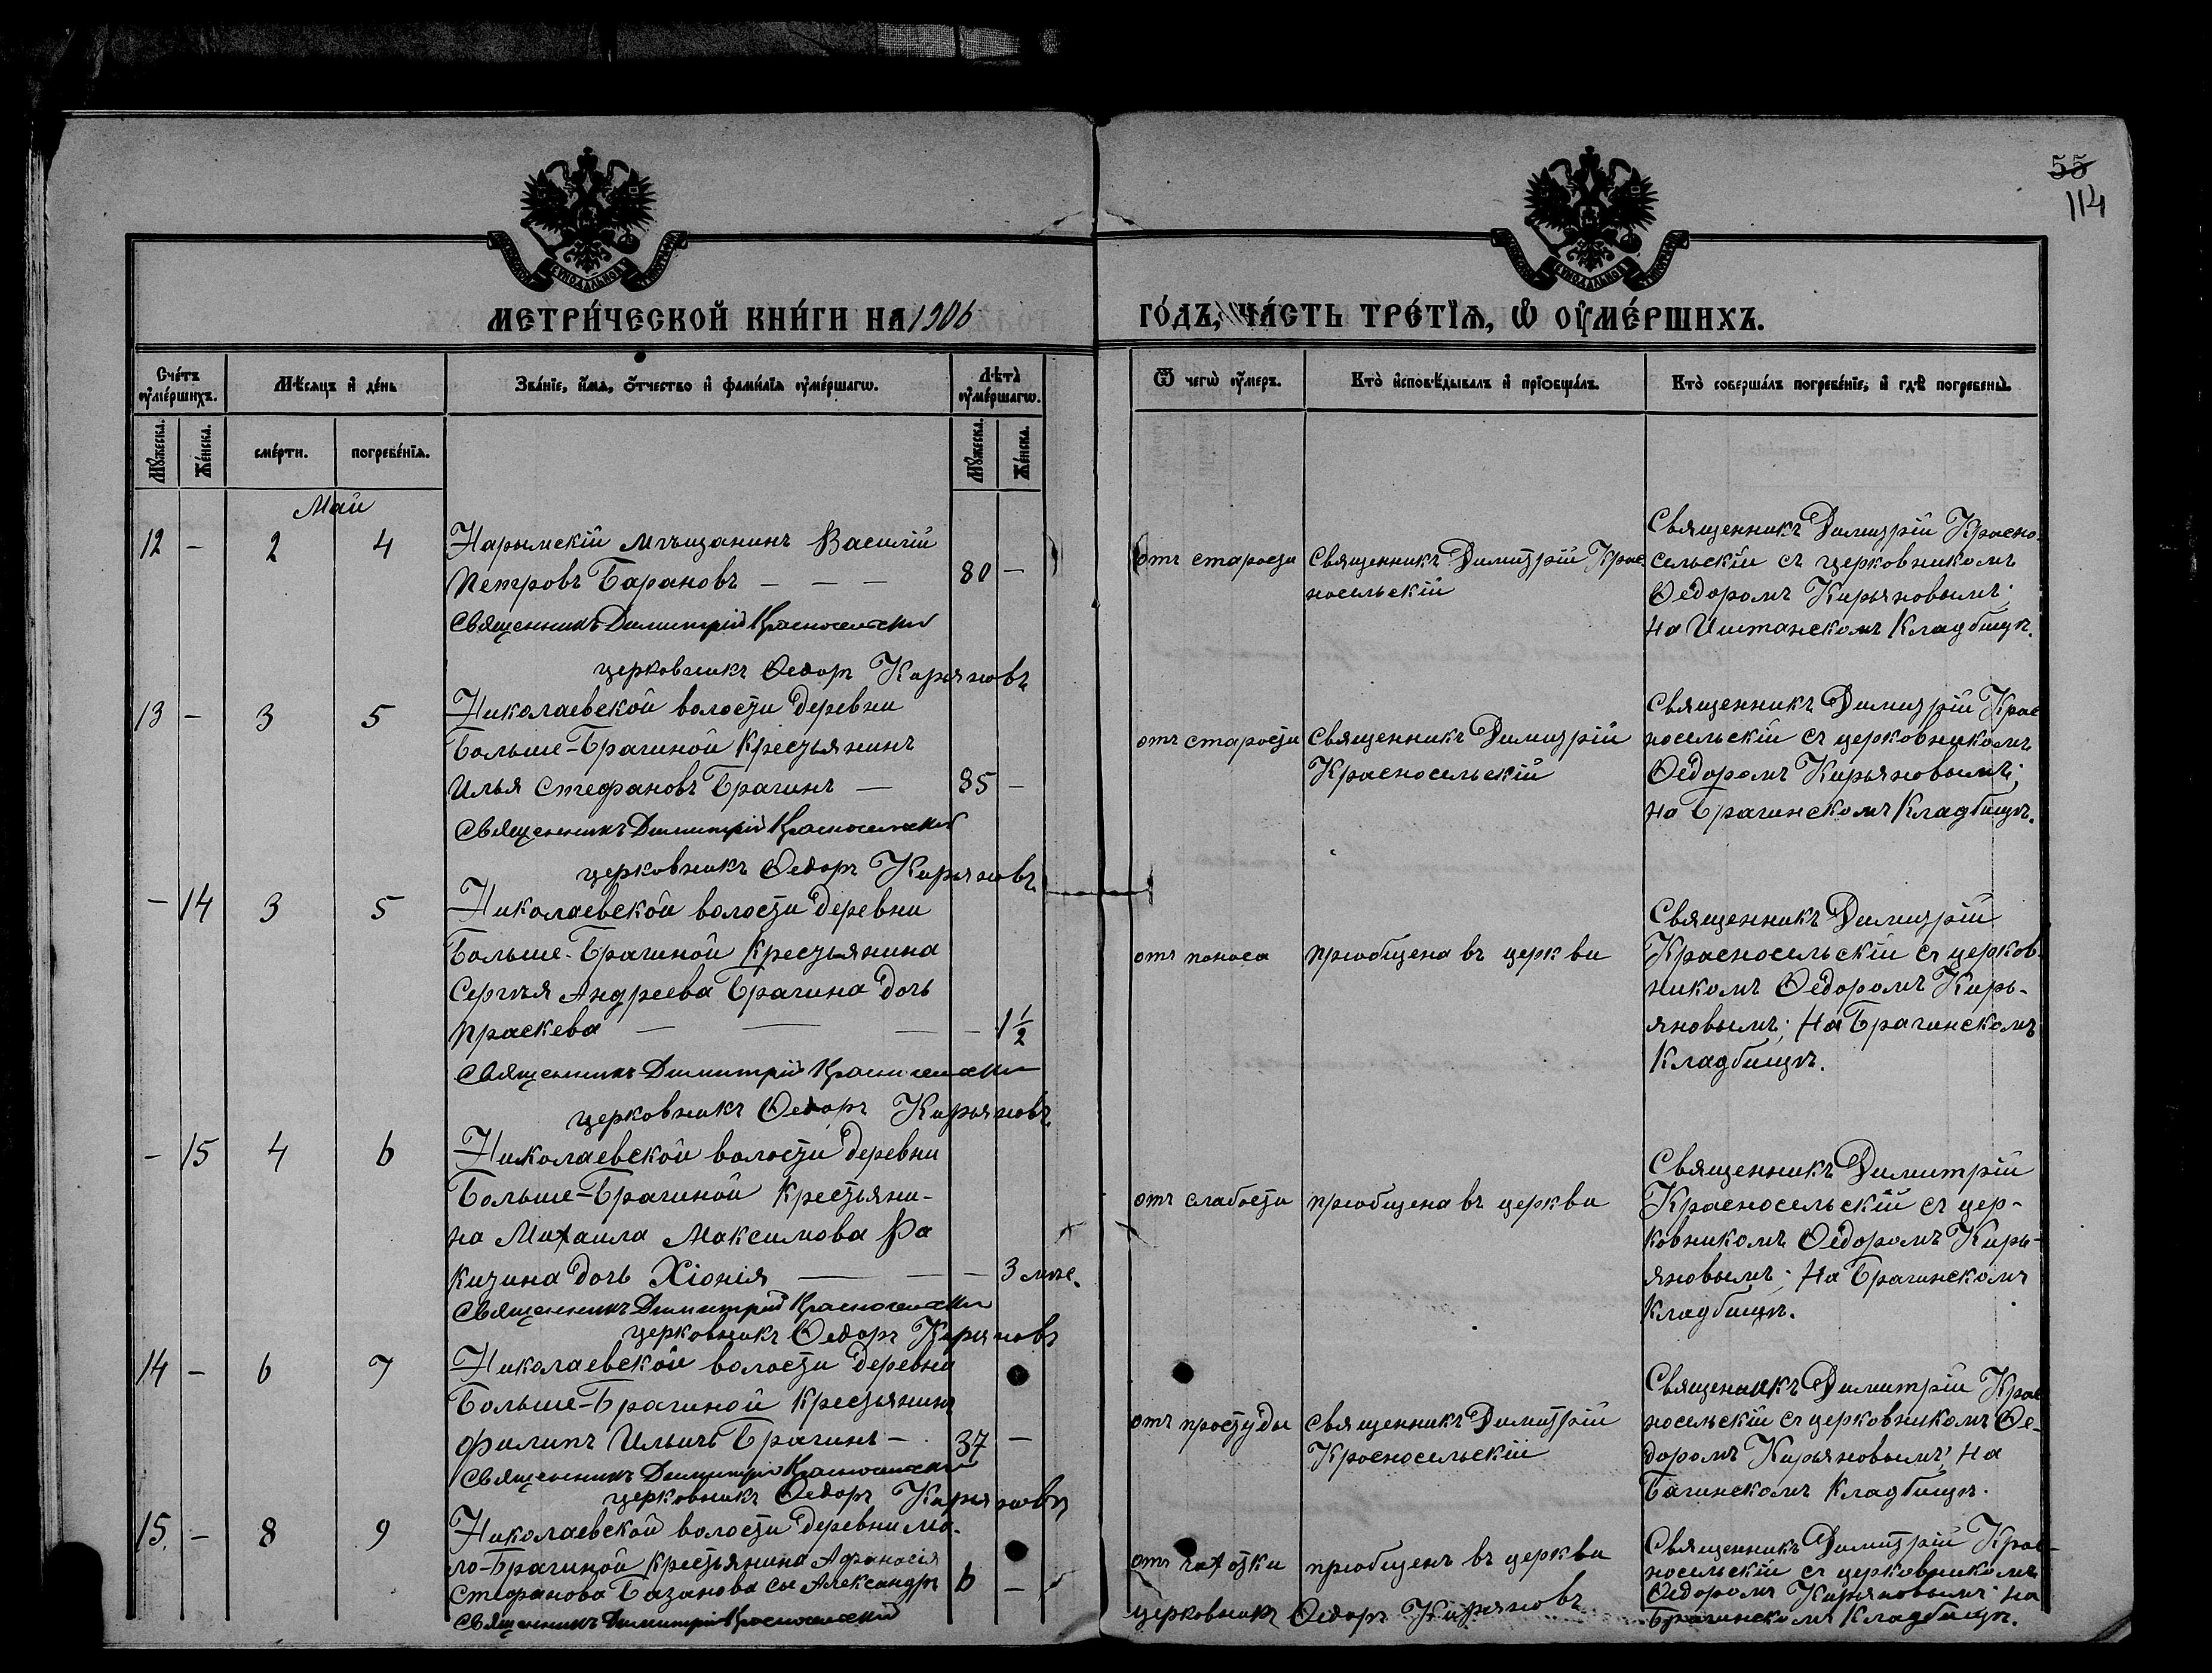 55
114
МЕТРИ́ЧЕСКОЙ КНИ́ГИ НА 1906
ГО́ДЪ, ЧА́СТЬ ТРЕ́ТІѦ, Ѡ ОУМЕ́РШИХЪ.
Сче́тъ оумершихъ.
Мѣсяцъ и де́нь
Зва́нїе, и́мѧ, о́тчество и фами́лїѧ оуме́ршагѡ.
Лѣта̀ оуме́ршагѡ.
Ѿ чегѡ̀ оу́меръ.
Кто̀ исповѣ́дывалъ и прїобща́лъ.
Кто̀ соверша́лъ погребе́нїе, и гдѣ̀ погребены̀.
Му́жеска.
Же́нска.
сме́рти.
погребе́нїѧ.
Му́жеска.
Же́нска.
Май
12 – 2 4
Нарымскій мѣщанинъ Василій
Петровъ Барановъ – – – 80 –
Священникъ Димитрій Красносельскій
церковникъ Ѳедоръ Кирьяновъ
отъ старости
Священникъ Димитрій Крас
носельскій
Священникъ Димитрій Красно
сельскій съ церковникомъ
Ѳедоромъ Кирьяновымъ;
на Иштанскомъ Кладбищѣ.
13 – 3 5
Николаевской волости деревни
Больше-Брагиной Крестьянинъ
Илья Стефановъ Брагинъ – 85 –
Священникъ Димитрій Красносельскій
церковникъ Ѳедоръ Кирьяновъ
отъ старости
Священникъ Димитрій
Красносельскій
Священникъ Димитрій Крас
носельскій съ церковникомъ
Ѳедоромъ Кирьяновымъ;
на Брагинскомъ Кладбищѣ.
– 14 3 5
Николаевской волости деревни
Больше-Брагиной Крестьянина
Сергѣя Андреева Брагина дочь
Праскева – – – – 1 1/2
Священникъ Димитрій Красносельскій
церковникъ Ѳедоръ Кирьяновъ.
отъ поноса
приобщена въ церкви
Священникъ Димитрій
Красносельскій съ церков
никомъ Ѳедоромъ Кирь-
яновымъ; на Брагинскомъ
Кладбищѣ.
– 15 4 6
Николаевской волости деревни
Больше-Брагиной Крестьяни-
на Михаила Максимова Ра
кизина дочь Хіонія – – – 3 мѣс.
Священникъ Димитрій Красносельскій
церковникъ Ѳедоръ Кирьяновъ
отъ слабости
приобщена въ церкви
Священникъ Димитрій
Красносельскій съ цер-
ковникомъ Ѳедоромъ Кирь-
яновымъ; на Брагинскомъ
Кладбищѣ.
14 – 6 7
Николаевской волости деревни
Больше-Брагиной Крестьянинъ
Филипъ Ильичъ Брагинъ – 37 –
Священникъ Димитрій Красносельскій
церковникъ Ѳедоръ Кирьяновъ
отъ простуды
Священникъ Димитрій
Красносельскій
Священникъ Димитрій Крас
носельскій съ церковникомъ Ѳе-
доромъ Кирьяновымъ; на
Багинскомъ Кладбищѣ.
15. – 8 9
Николаевской волости деревни Ма-
ло-Брагиной крестьянина Афанасія
Стефанова Базанова сы Александръ 6 –
Священникъ Димитрій Красносельскій
отъ чахотки
приобщенъ въ церкви
церковникъ Ѳедоръ Кирьяновъ
Священникъ Димитрій Крас-
носельскій съ церковникомъ
Ѳедоромъ Кирьяновымъ; на
Брагинскомъ Кладбищѣ.